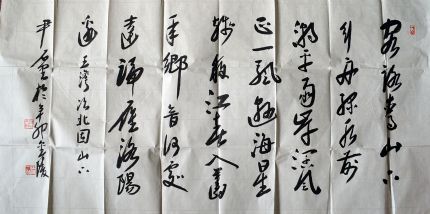 客路青山下
行舟綠水前
潮平兩岸闊風
正一帆懸海日生
殘夜江春入舊
年鄉書何處
達歸雁洛陽
邊 王灣次北固山下
於辛卯金陵